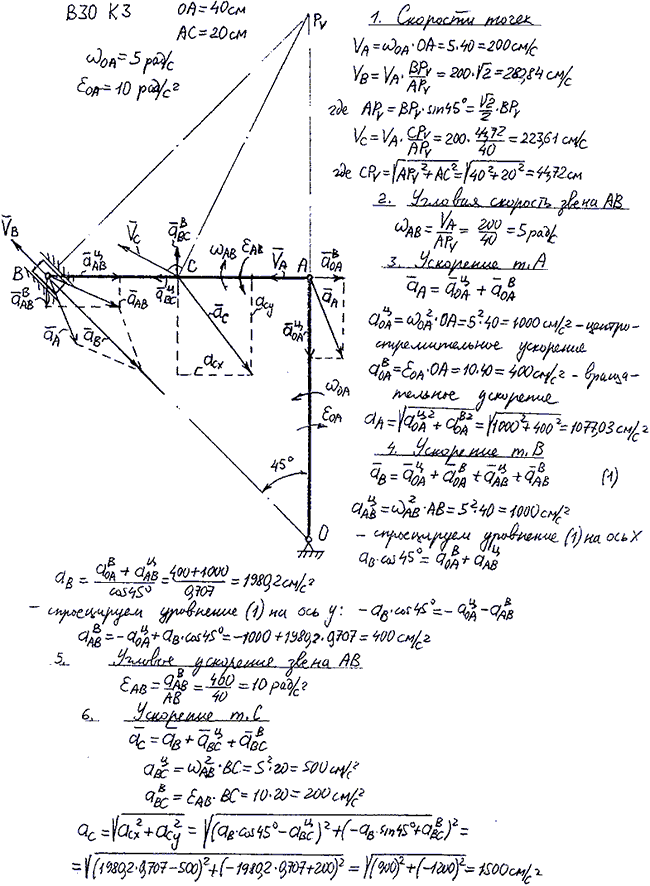 В30 К3
OA=40см
AC=20см
ω_OA=5 рад/с
ε_OA=10 рад/с²
P_V
1. Скорости точек
V_A=ω_OA·OA=5·40=200 см/с
V_B=V_A·BP_V/AP_V=200·√2=282,84 см/с
где AP_V=BP_V·sin45°=√2/2·BP_V
V_C=V_A·CP_V/AP_V=200·44,72/40=223,61 см/с
где CP_V=√(AP_V²+AC²)=√(40²+20²)=44,72см
2. Угловая скорость звена AB
ω_AB=V_A/AP_V=200/40=5 рад/с
3. Ускорение т.A
a̅_A=a̅ᵸ_OA+a̅ᴮ_OA
aᵸ_OA=ω_OA²·OA=5²·40=1000 см/с² – центро-
стремительное ускорение
aᴮ_OA=ε_OA·OA=10·40=400см/с² – враща-
тельное ускорение
a_A=√(aᵸ_OA²+aᴮ_OA²)=√(1000²+400²)=1077,03 см/с²
4. Ускорение т.B
a̅_B=a̅ᵸ_OA+a̅ᴮ_OA+a̅ᵸ_AB+a̅ᴮ_AB (1)
aᵸ_AB=ω²_AB·AB=5²·40=1000 см/с²
– спроецируем уровнение (1) на ось X
a_B·cos45°=aᴮ_OA+aᵸ_AB
V̅_B
B
a̅ᵸ_AB
a̅ᴮ_AB
a̅_AB
a̅_A
a̅_B
V̅_C
a̅ᴮ_BC
a̅ᵸ_BC
C
ω_AB
ε_AB
V̅_A
A
a̅ᴮ_OA
a̅_A
a̅_C
a_Cy
a_Cx
a̅ᵸ_OA
ω_OA
ε_OA
45°
O
a_B=(aᴮ_OA+aᵸ_AB)/cos45°=(400+1000)/0,707=1980,2 см/с²
– спроецируем уровнение (1) на ось y: -a_B·cos45°=-aᵸ_OA-aᴮ_AB
aᴮ_AB=-aᵸ_OA+a_B·cos45°=-1000+1980,2·0,707=400 см/с²
5. Угловые ускорение звена AB
ε_AB=aᴮ_AB/AB=400/40=10 рад/с²
6. Ускорение т.C
a̅_C=a̅_B+a̅ᵸ_BC+a̅ᴮ_BC
aᵸ_BC=ω²_AB·BC=5²·20=500 см/с²
aᴮ_BC=ε_AB·BC=10·20=200 см/с²
a_C=√(a_Cx²+a_Cy²)=√((a_B·cos45°-aᵸ_BC)²+(-a_B·sin45°+aᴮ_BC)²)=
=√((1980,2·0,707-500)²+(-1980,2·0,707+200)²)=√((900)²+(-1200)²)=1500 см/с²